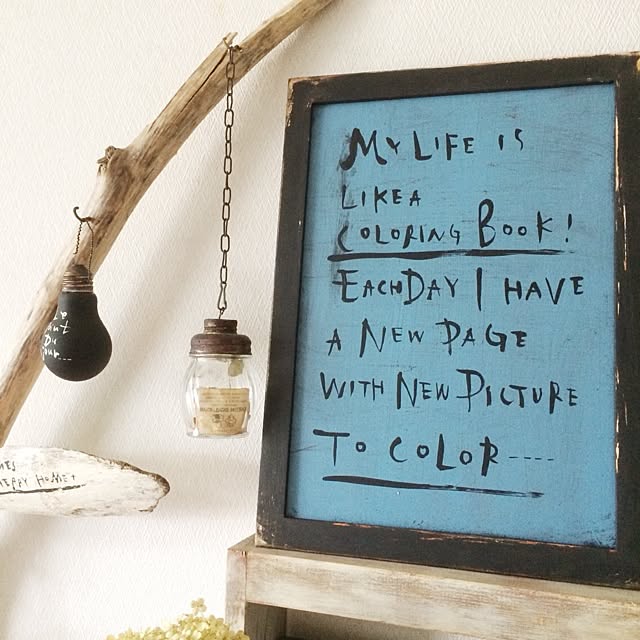 MY LIFE IS
LIKE A
COLORING BOOK!
EACH DAY I HAVE
A NEW PAGE
WITH NEW PICTURE
TO COLOR----